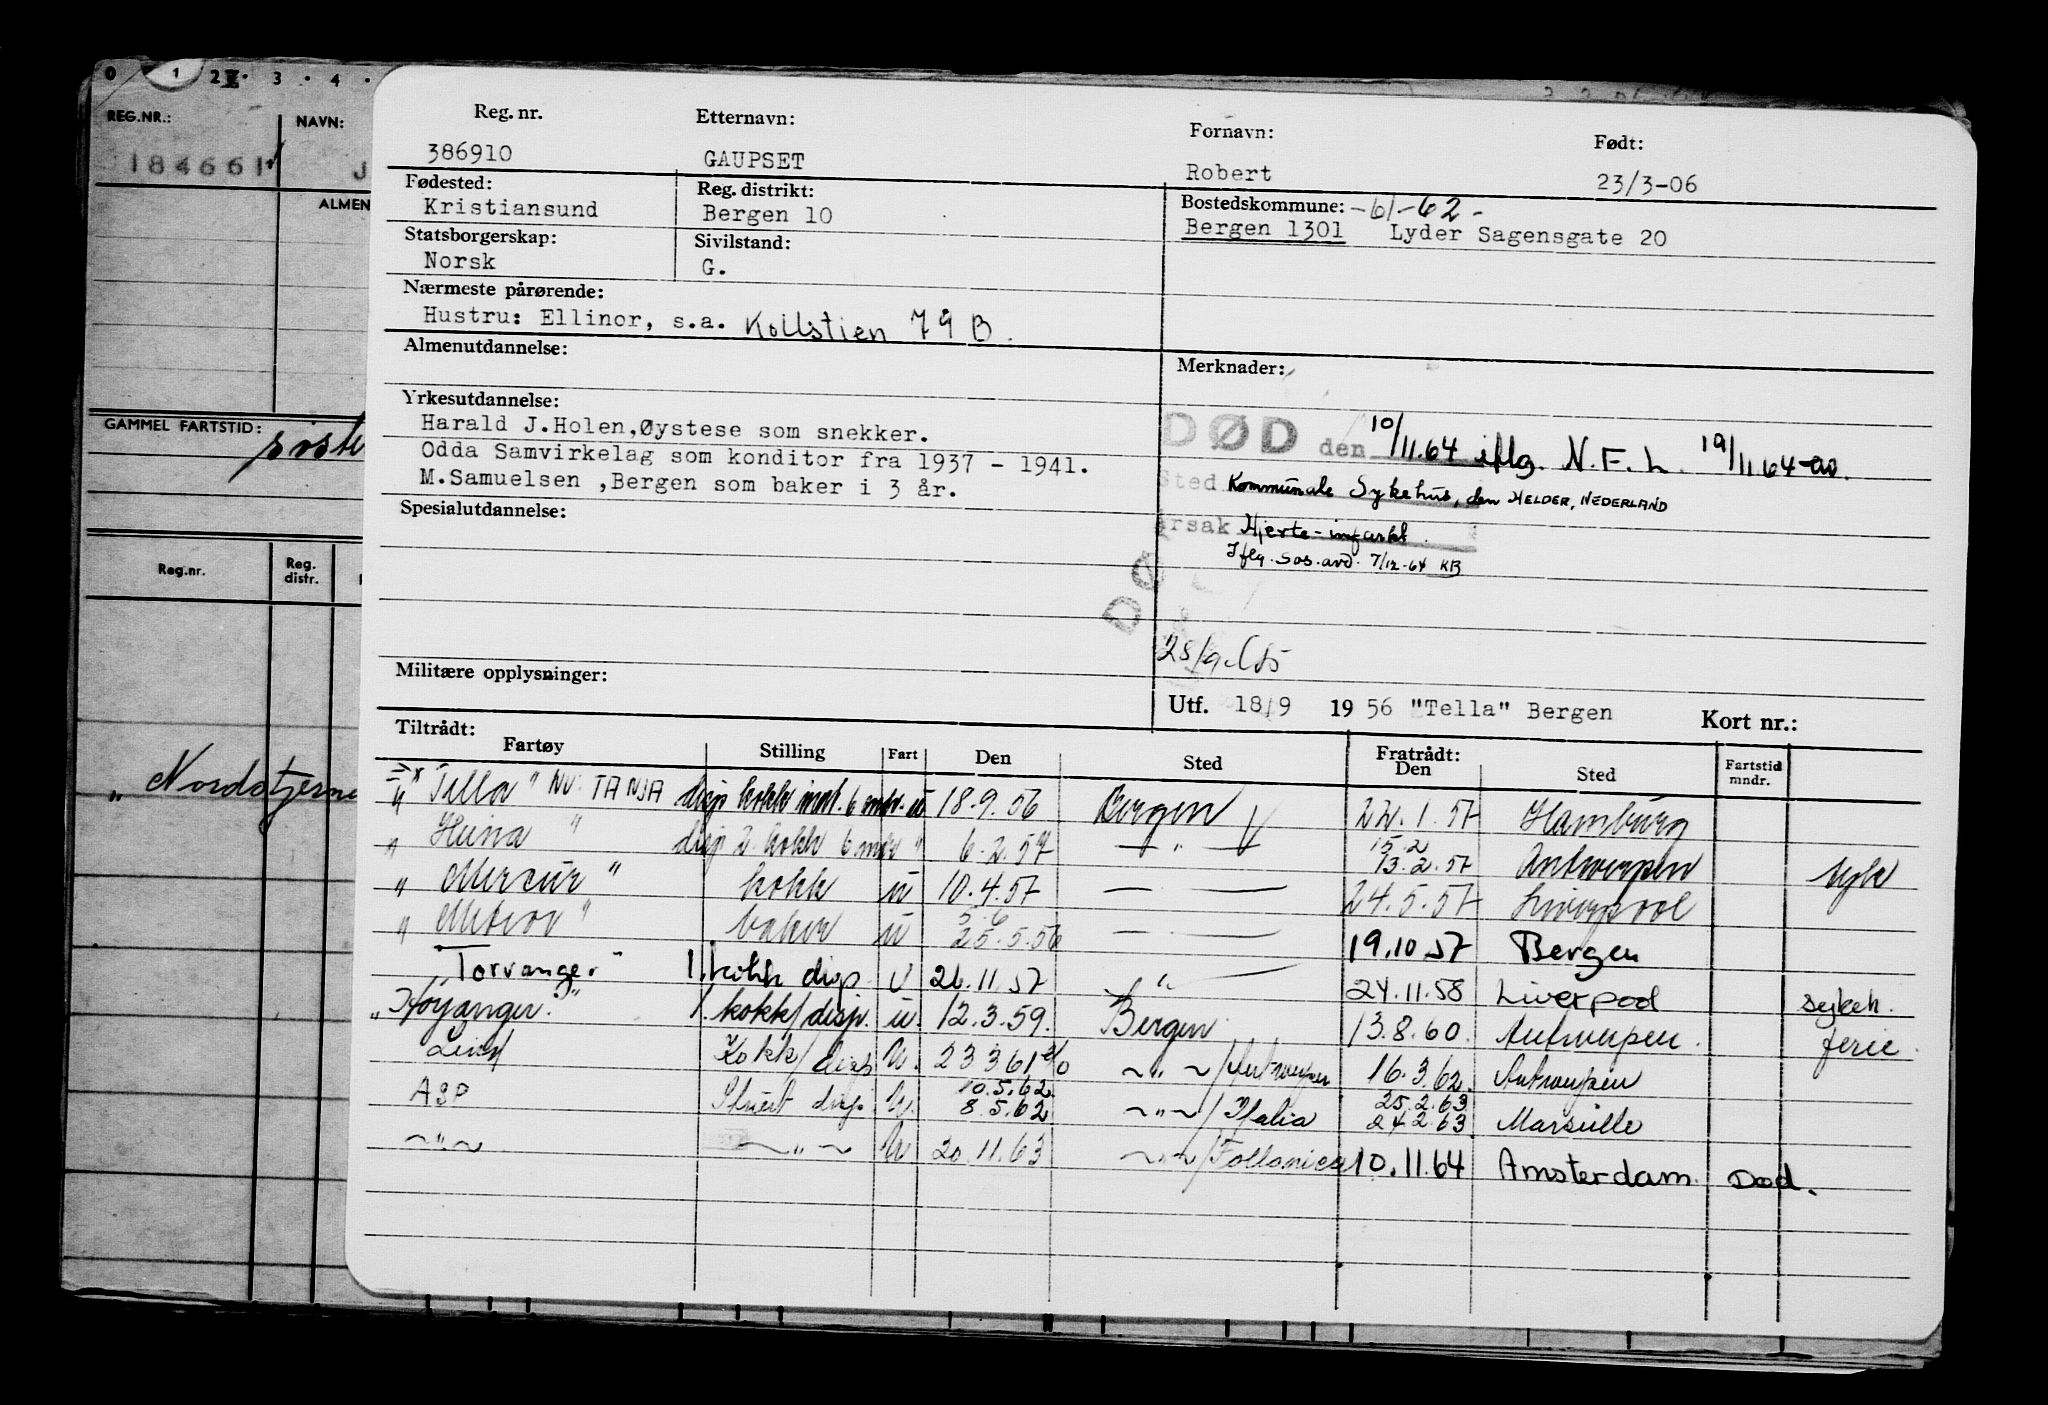 0 1 2 3 · 4 ·
REG.NR.: NAVN:
184661 J
ALMEN
GAMMEL FARTSTID:
siste
Reg.nr. Reg. distr.
„Nordstjerne
Reg. nr. Etternavn: Fornavn: Født:
386910 GAUPSET Robert 23/3-06
Fødested: Reg. distrikt: Bostedskommune: -61-62-
Kristiansund Bergen 10 Bergen 1301 Lyder Sagensgate 20
Statsborgerskap: Sivilstand:
Norsk G.
Nærmeste pårørende:
Hustru: Ellinor, s.a. Kollstien 79 B.
Almenutdannelse: Merknader:
Yrkesutdannelse:
Harald J.Holen,Øystese som snekker.
Odda Samvirkelag som konditor fra 1937 - 1941.
M.Samuelsen ,Bergen som baker i 3 år.
DØD den 10/11.64 iflg. N.F.L. 19/11.64-
Sted Kommunale Sykehus, den HELDER, NEDERLAND
Årsak Hjerte-infarkt.
Iflg. Sos.avd. 7/12-64 KB
Spesialutdannelse:
DØ
Militære opplysninger:
Utf. 18/9 1956 "Tella" Bergen Kort nr.:
Tiltrådt: Fratrådt:
Fartøy Stilling Fart Den Sted Den Sted Fartstid mndr.
"Tella" NU: TANJA disp kokk innt. 6 mdr. u 18.9.56 Bergen 22.1.57 Hamburg
" Heina " disp 2. kokk 6 mdr " 6.2.57 — " — 15.2 13.2.57 Antwerpen syk
" Mercur " kokk u 10.4.57 — — 24.5.57 Liverpool
" Meteor " baker u 5.6 25.5.56 — — 19.10.57 Bergen
"Torvanger" 1. kokk disp u 26.11.57 " 24.11.58 Liverpool sykeh.
"Høyanger" 1. kokk/disp. u. 12.3.59. Bergen 13.8.60. Antwerpen. ferie.
Lind Kokk/disp u. 23 3 61 ~"~/Antwerpen 16.3.62. Antwerpen
ASP Stuert disp. u. 10.5.62. 8.5.62 ~"~/Italia 25.2.63 24.2.63 Marseille
~"~ ~"~ u 20.11.63 ~"~/Follonica 10.11.64 Amsterdam. Død.